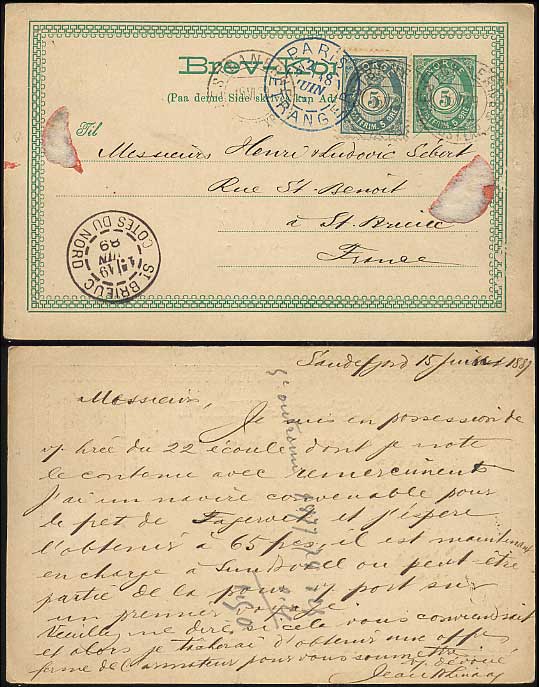 Brev-Kort
(Paa denne Side skrives kun Ad
Til
Messieurs Henri & Ludovic Sébert
Rue St-Benoît
à St-Brieuc
France
PARIS
18
JUIN
ETRANGER
NORGE
5
POSTFRIM. 5 ØRE
NORGE
5
POSTFRIM. 5 ØRE
ST BRIEUC
19
JUIN
89
COTES DU NORD
Sandefjord 15 Juin 1889
Messieurs,
Je suis en possession de
v/ hrée du 22 écoulé dont je note
le contenu avec remerciments
J'ai un navire convenable pour
le pet de Fagervik et j'espère
l'obtenir à 65 fcs, il est maintenant
en charge à Sundsvall ou peut-être
partie de la pour v/ port sur
un premier voyage
Veuillez me dire si cela vous conviendrait
et alors je tacherai d'obtenir une offre
ferme de l'armateur pour vous soumettre
v. dévoué
Jean